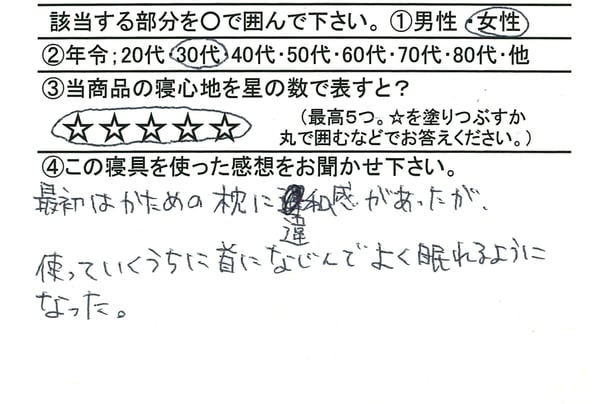 該当する部分を〇で囲んで下さい。①男性・女性
②年令；20代・30代・40代・50代・60代・70代・80代・他
③当商品の寝心地を星の数で表すと？
☆☆☆☆☆
（最高5つ。☆を塗りつぶすか
丸で囲むなどでお答えください。）
④この寝具を使った感想をお聞かせ下さい。
最初はかための枕に違和感があったが、
使っていくうちに首になじんでよく眠れるように
なった。